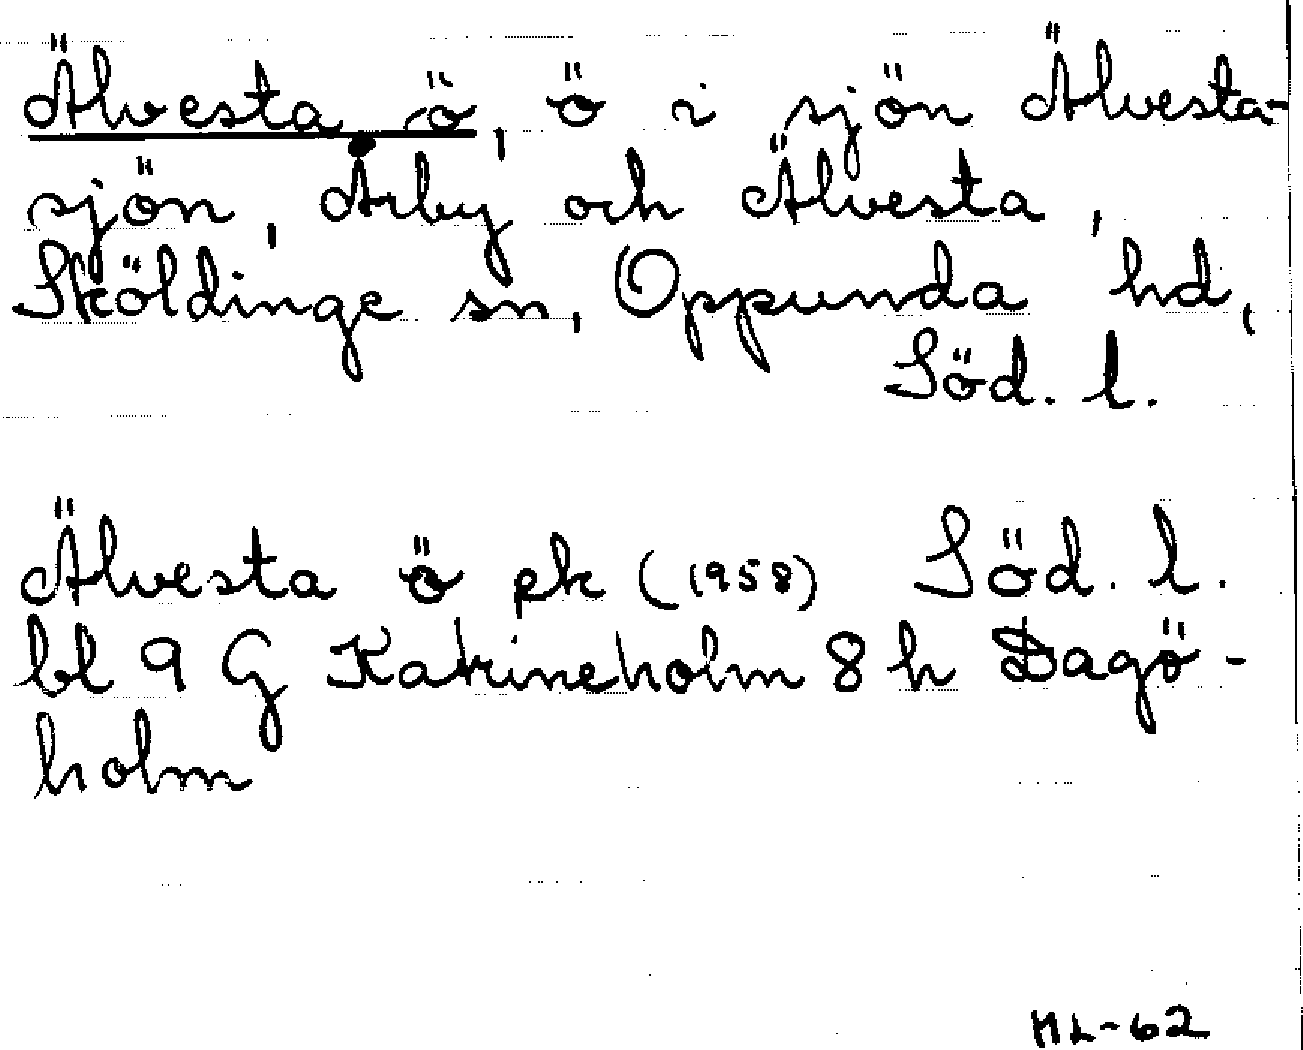 Älvesta ö, ö i sjön Älvesta-
sjön, Årby och Älvesta,
Sköldinge sn, Oppunda hd,
Söd. l.
Älvesta ö ek (1958) Söd. l.
bl 9 G Katrineholm 8 h Dagö-
holm
ML-62